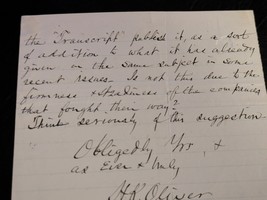 the "Transcript" publish it, as a sort
of addition to what it has already
given on the same subject in some
recent issues. Is not this due to the
firmness & steadiness of the companies
that fought their way?
Think seriously of this suggestion.
Obligedly Yrs, &
as Ever & truly
H.K. Oliver